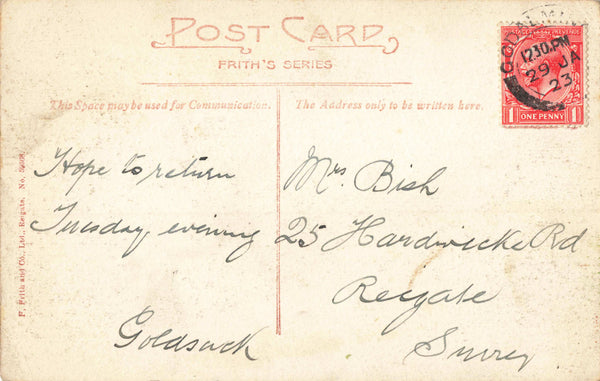 POST CARD
FRITH'S SERIES
This Space may be used for Communication.
The Address only to be written here.
POSTAGE REVENUE
1 ONE PENNY 1
12 30 PM
29 JA
23
Hope to return
Tuesday, evening
Mrs. Bish
25 Hardwicke Rd
Reigate
Surrey
F. Frith and Co., Ltd., Reigate. No.